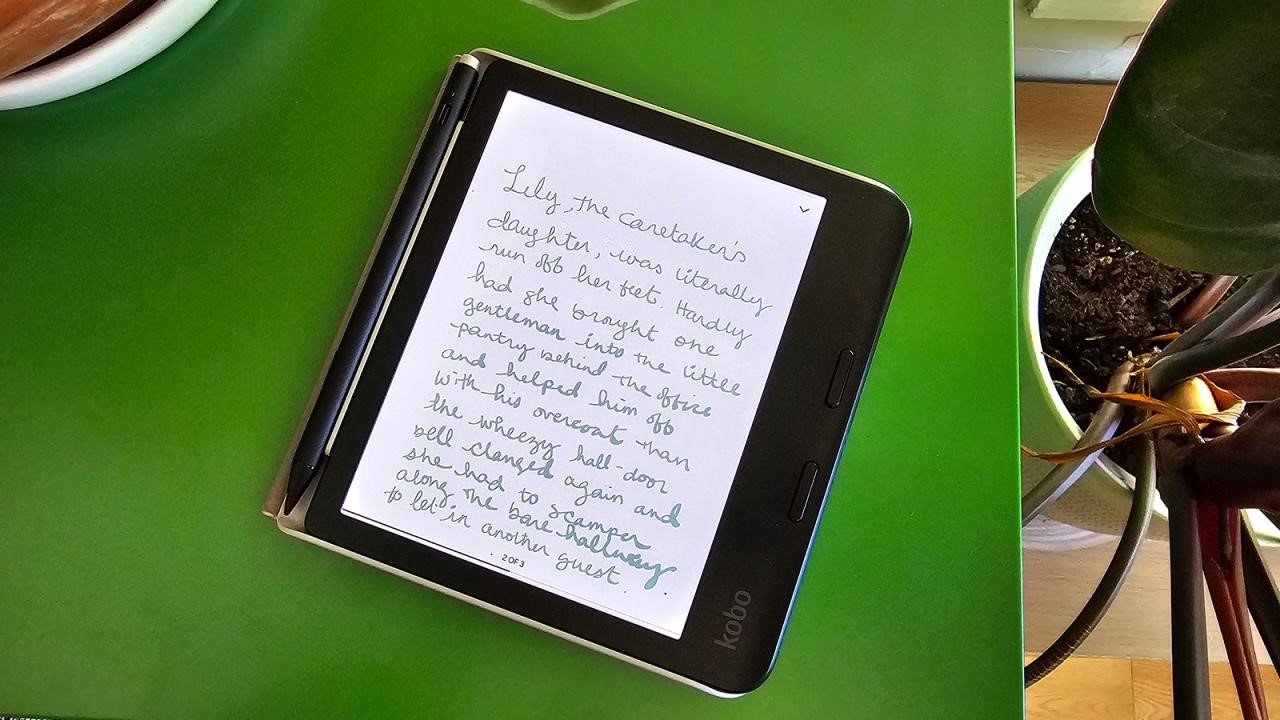 Lily, the caretaker's
daughter, was literally
run off her feet. Hardly
had she brought one
gentleman into the little
pantry behind the office
and helped him off
with his overcoat than
the wheezy hall-door
bell clanged again and
she had to scamper
along the bare hallway
to let in another guest.
2 OF 3
kobo